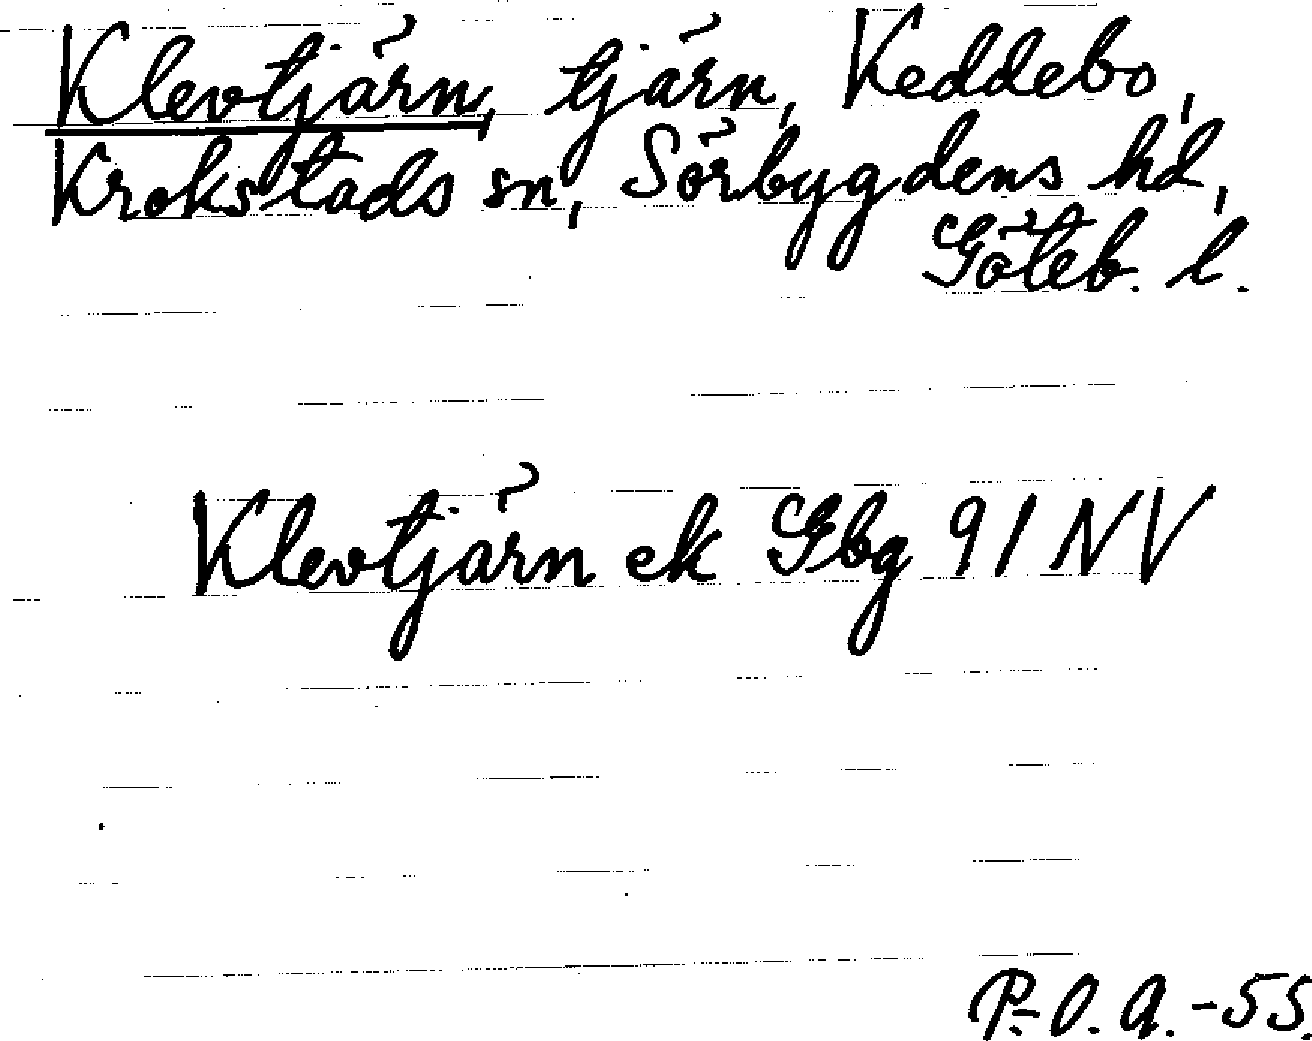 Klevtjärn, tjärn, Keddebo,
Krokstads sn, Sörbygdens hd,
Göteb. l.
Klevtjärn ek Gbg 91 NV
P.-O. A. -55.